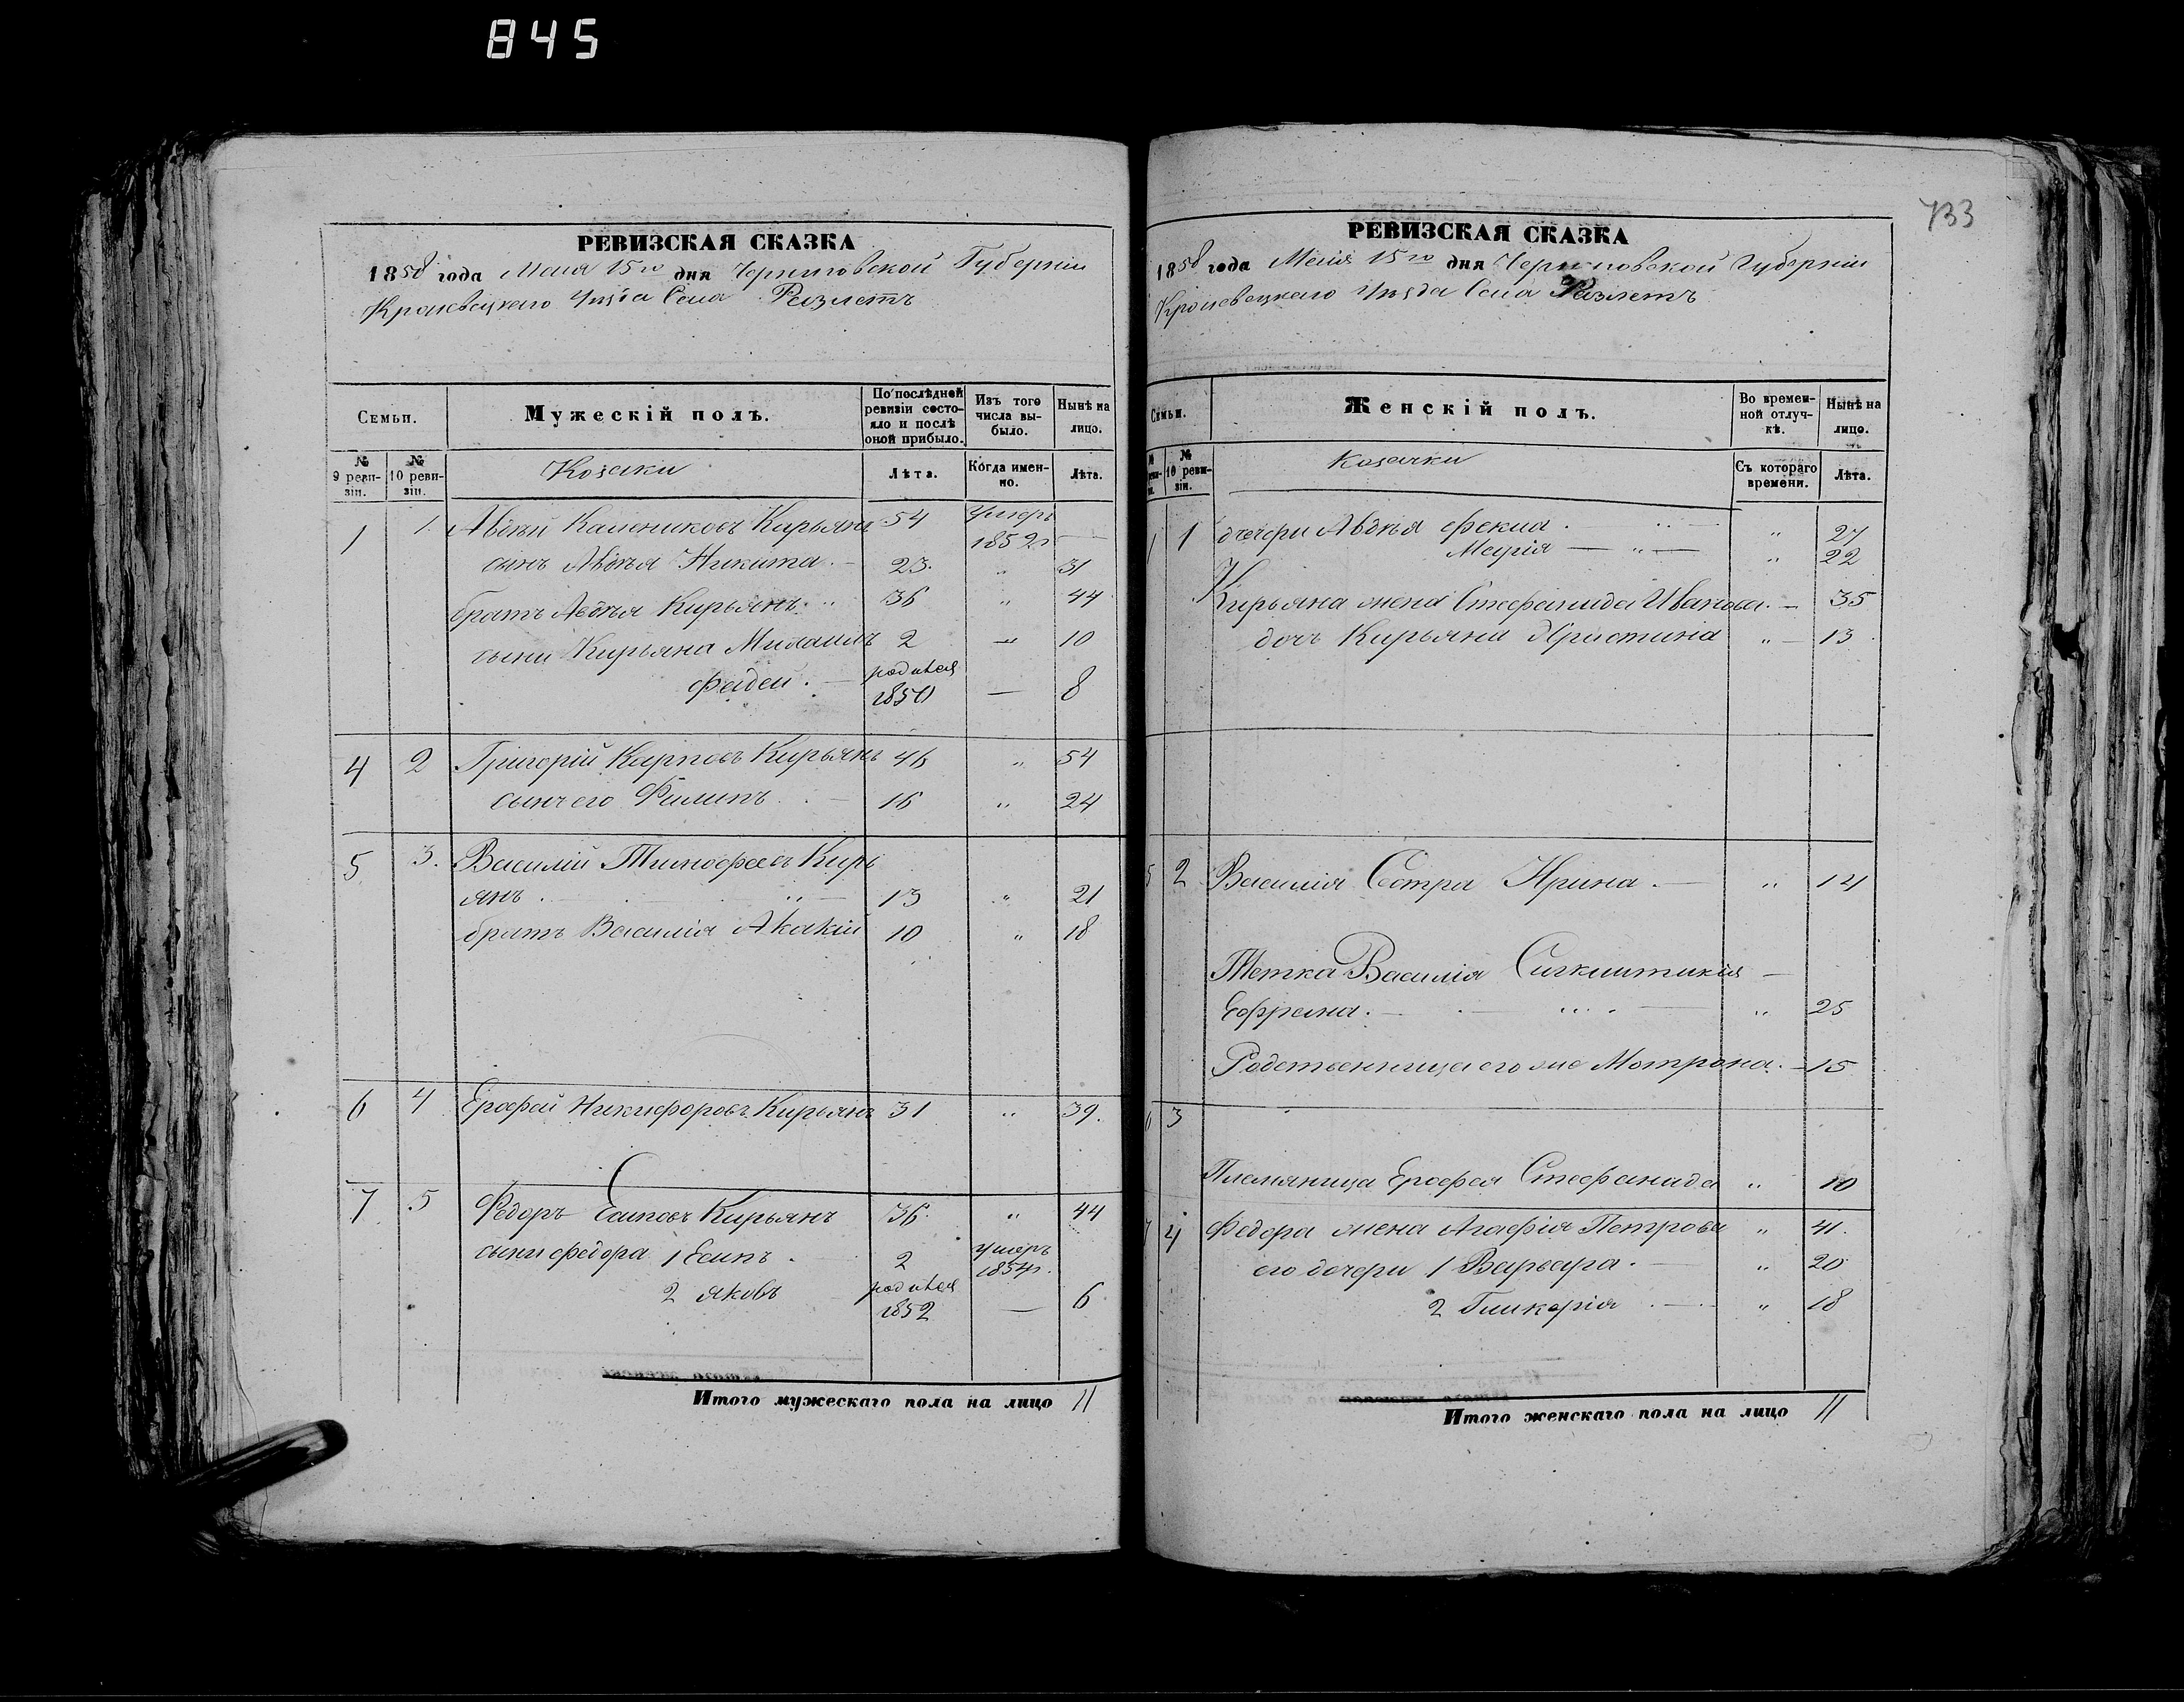 845
РЕВИЗСКАЯ СКАЗКА
1858 года Мая 15го дня Черниговской Губерніи
Кролевецкаго Уѣзда Села Разлетъ
Семьи.
Мужескій полъ.
По послѣдней ревизіи состояло и послѣ оной прибыло.
Изъ того числа выбыло.
Нынѣ на лицо.
№ 9 ревизіи.
№ 10 ревизіи.
Козаки
Лѣта.
Когда именно.
Лѣта.
1 1 Авдѣй Калениковъ Кирьянъ 54 Умеръ 1852г —
сынъ Авдѣя Никита. — 23. " 31
братъ Авдѣя Кирьянъ. " 36 " 44
сыни Кирьяна Михаилъ 2 — 10
Фадей. — родился 1850 — 8
4 2 Григорій Карповъ Кирьянъ 46 " 54
сынъ его Филипъ — 16 " 24
5 3. Василій Тимофеевъ Кирь
янъ. " — 13 " 21
братъ Василія Акакій 10 " 18
6 4 Ерофей Никифоровъ Кирьянъ 31 " 39.
7 5 Федоръ Есиповъ Кирьянъ 36. " 44
сыни Федора 1 Есипъ. 2 Умеръ 1854г.
2 Яковъ родился 1852 — 6
Итого мужескаго пола на лицо 11
733
РЕВИЗСКАЯ СКАЗКА
1858 года Мая 15го дня Черниговской Губерніи
Кролевецкаго Уѣзда Села Разлетъ
Семьи.
Женскій полъ.
Во временной отлучкѣ.
Нынѣ на лицо.
№ 10 ревизіи.
Козачки
Съ котораго времени.
Лѣта.
1 1 дочери Авдѣя Фекла. " 27
Марія — " — " 22
Кирьяна жена Стефанида Иванова. — 35
дочь Кирьяна Христина " — 13
5 2 Василія Сестра Ирина. — " 14
Тетка Василія —
Ефросина. — " 25
Родственница его же Мотрона. — 15
6 3
Племянница Ерофея Стефанида " 10
7 4 Федора жена Агафія Петрова " 41.
его дочери 1 Варвара. — " 20
2 Гликерія — " 18
Итого женскаго пола на лицо 11